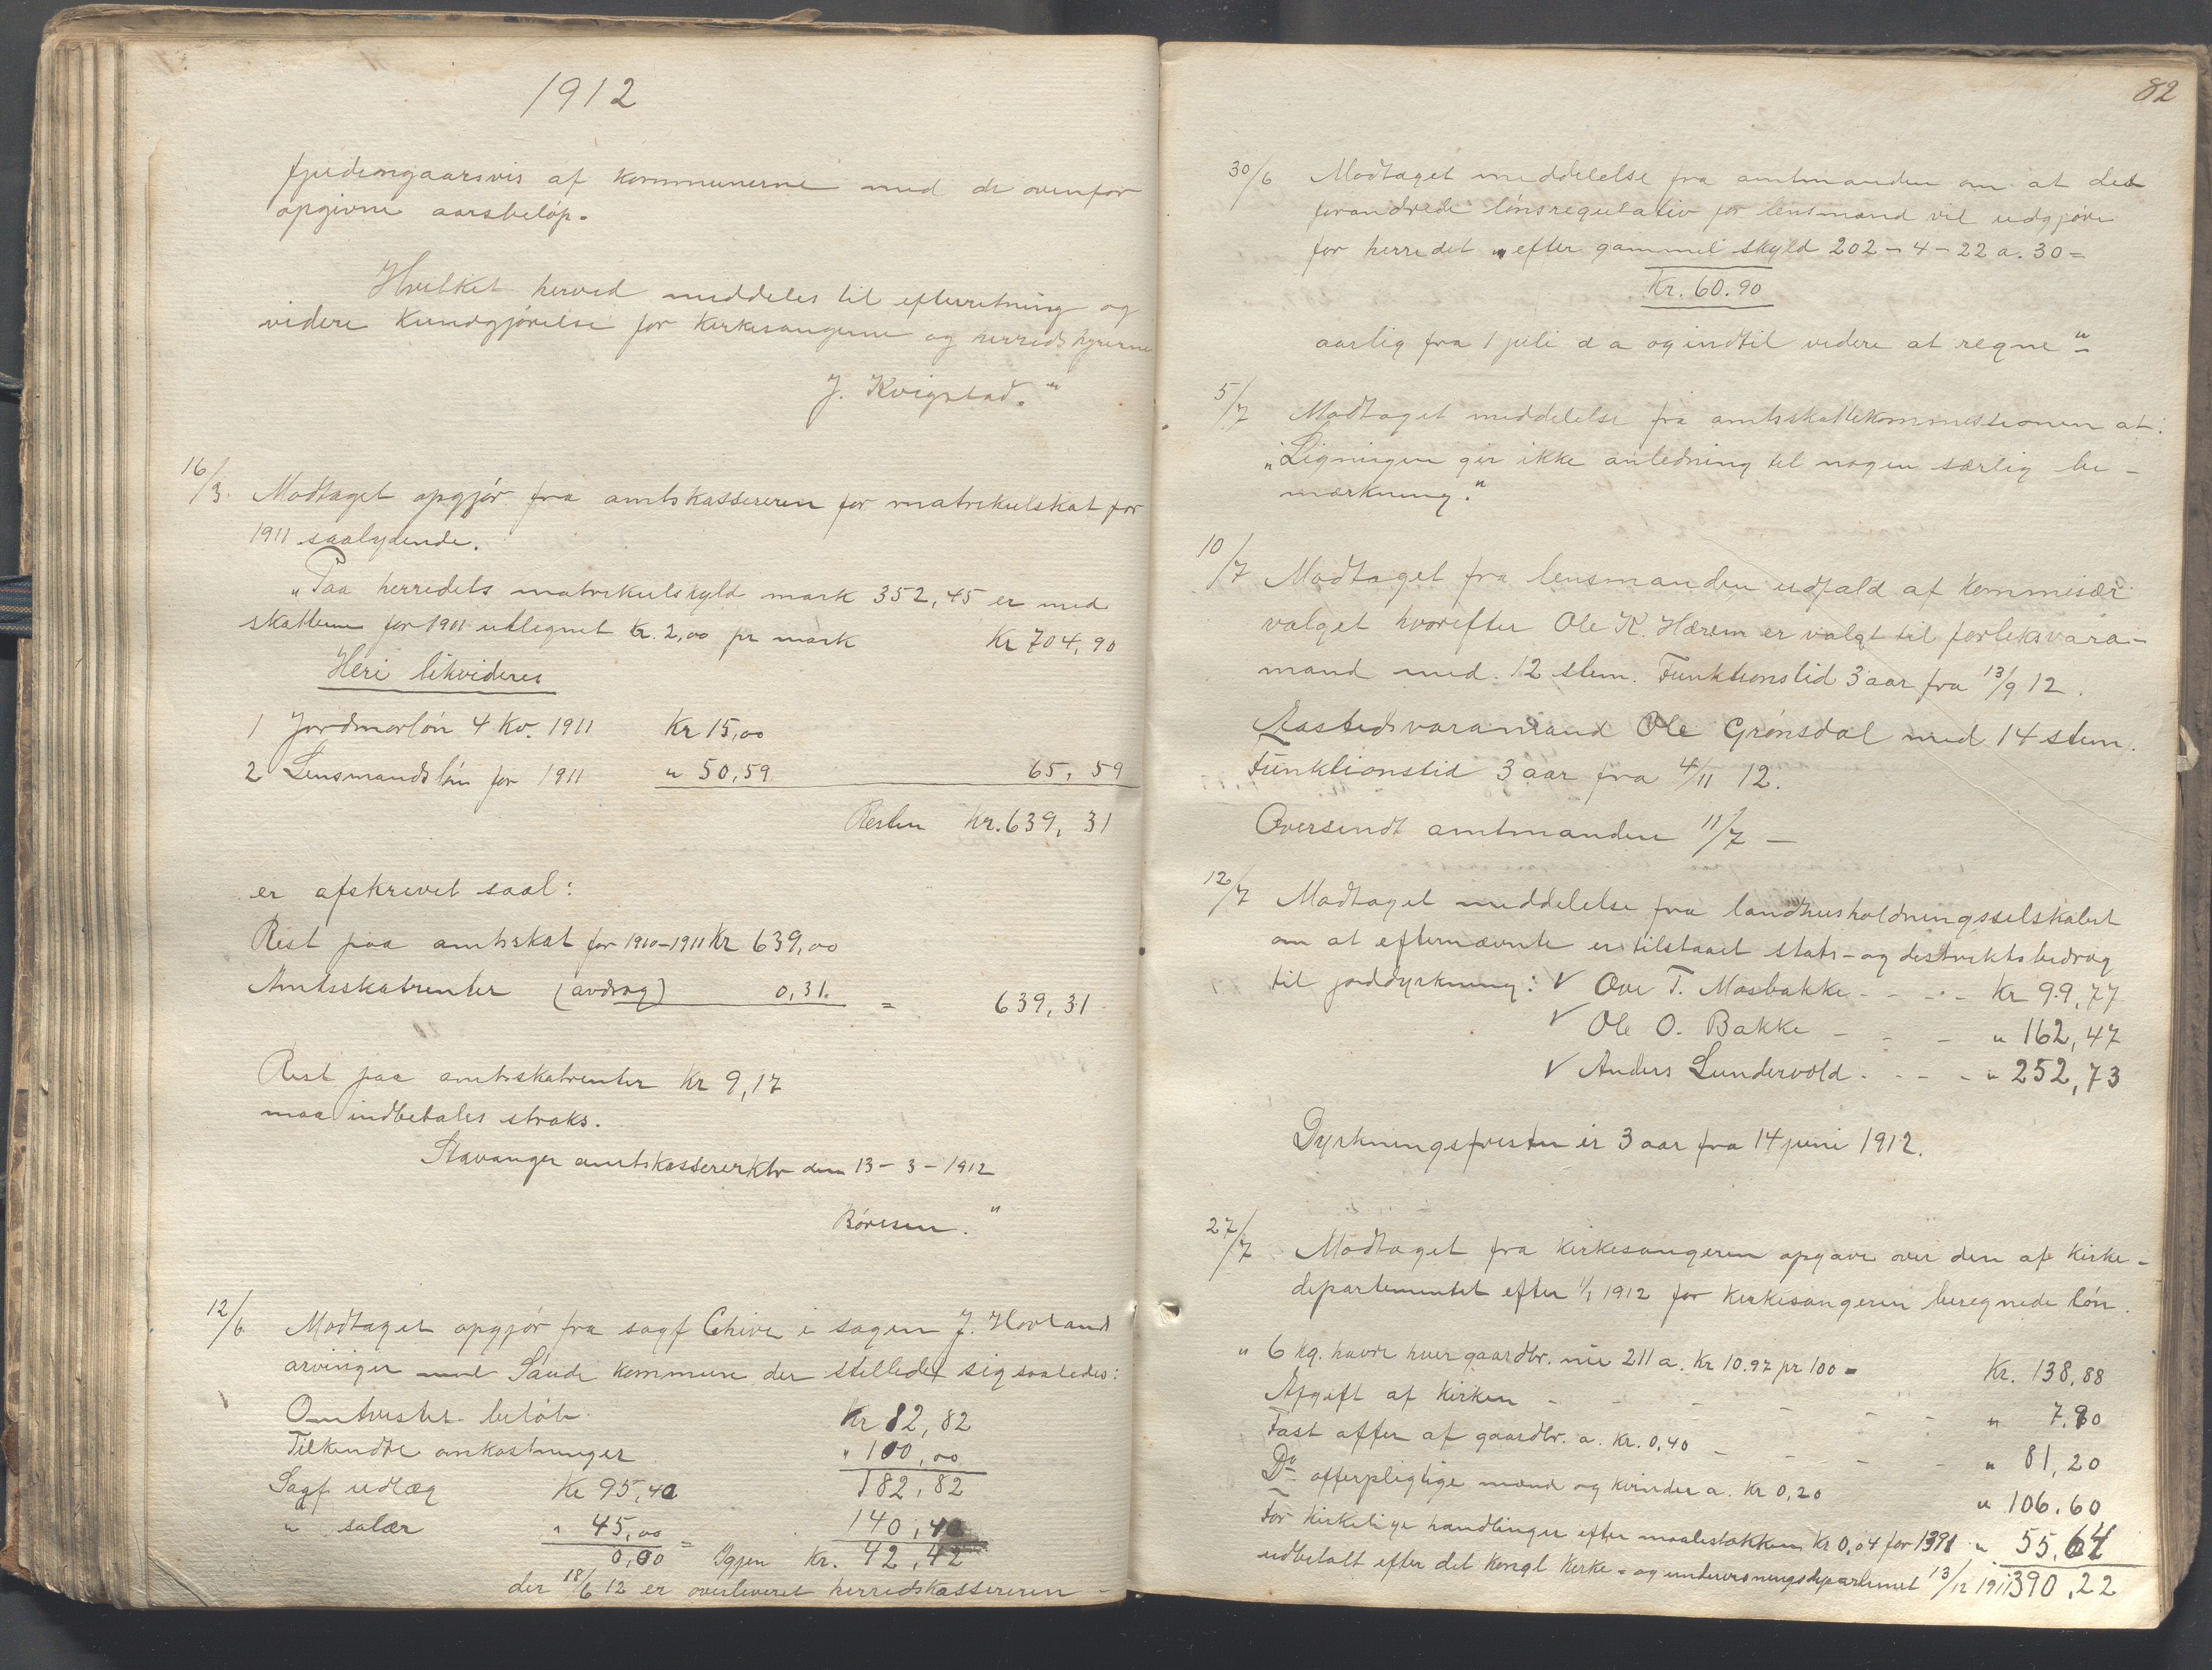 1912
fjerdingaarsvis af kommunerne med de ovenfor
opgivne aarsbeløp.
Hvilket herved meddeles til efterretning og
videre kundgjørelse for kirkesangerne og herredstyrerne
J. Kvigstad."
16/3. Modtaget opgjør fra amtskassereren for matrikulskat for
1911 saalydende.
"Paa herredets matrikulskyld mark 352,45 er med
skatten for 1911 utlignet kr. 2,00 pr mark Kr 704,90
Heri likvideres
1 Jordmorløn 4 Kv. 1911 Kr 15,00
2 Lensmandsløn for 1911 " 50,59 65,59
Resten kr. 639,31
er afskrevet saal:
Rest paa amtsskat for 1910-1911 Kr 639,00
Amtsskatrenter (avdrag) 0,31. = 639,31
Rest paa amtsskatrenter Kr 9,17
maa indbetales straks.
Stavanger amtskassererktr den 13-3-1912
Børesen."
12/6 Modtaget opgjør fra sagf. i sagen J. Hovland
arvinger mot Sande kommune der stillede sig saaledes:
Omtvistet beløb Kr 82,82
Tilkendte omkostninger " 100,00
182,82
Sagf. udlæg Kr 95,40
" salær " 45,00 140,40
0,00 = Igjen Kr. 42,42
der 18/6 12 er overleveret herredskassereren -
82
30/6 Modtaget meddelelse fra amtmanden om at det
forandrede lønsregulativ for lensmand vil udgjøre
for herredet "efter gammel skyld 202-4-22 a. 30 =
Kr. 60.90
aarlig fra 1 juli d a og indtil videre at regne"
5/7 Modtaget meddelelse fra amtsskattekommissionen at:
"Ligningen gir ikke anledning til nogen særlig be-
mærkning."
10/7 Modtaget fra lensmanden udfald af kommisær
valget hvorefter Ole K. Hærem er valgt til forliksvara-
mand med 12 stem. Funktionstid 3 aar fra 13/9 12.
Aastedsvaramand Ole Grønsdal med 14 stem.
Funktionstid 3 aar fra 4/11 12.
Oversendt amtmanden 11/7 —
12/7 Modtaget meddelelse fra landhusholdningsselskabet
om at efternævnte er tilstaaet stats- og distriktsbidrag
til jorddyrkning: V Ove T. Mosbakke - - - - Kr 99,77
V Ole O. Bakke - - - " 162,47
V Anders Lundervold - - - - " 252,73
Dyrkningsfristen er 3 aar fra 14 juni 1912.
27/7 Modtaget fra kirkesangeren opgave over den af kirke-
departementet efter 1/1 1912 for kirkesangeren beregnede løn.
" 6 kg. havre hver gaardbr. nu 211 a. Kr 10.97 pr 100 = Kr. 138,88
Afgift af kirken - - - - - - " 7.90
Fast offer af gaardbr. a. Kr. 0,40 - - - - " 81,20
Do offerpligtige mænd og kvinder a. Kr 0,20 " 106.60
For kirkelige handlinger efter maalestokken Kr 0,04 for 1391 " 55,64
udbetalt efter det kongl kirke- og undervisningsdepartemet 13/12 1911 390,22